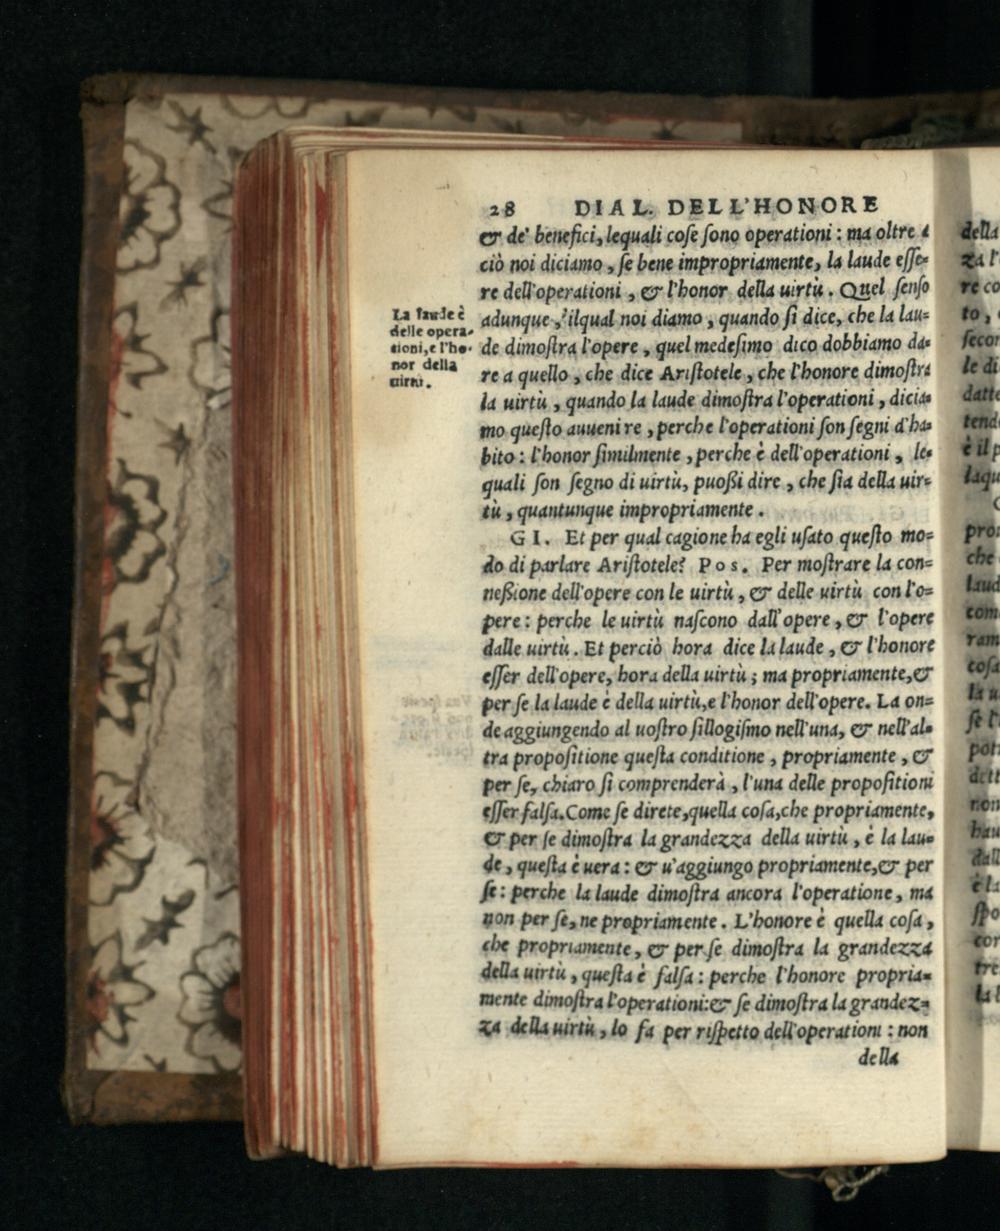 28 DIAL. DELL'HONORE
& de' benefici, lequali cose sono operationi : ma oltre a
ciò noi diciamo, se bene impropriamente, la laude esse=
re dell'operationi, & l'honor della uirtù. Quel senso
adunque, ilqual noi diamo, quando si dice, che la lau=
de dimostra l'opere, quel medesimo dico dobbiamo da=
re a quello, che dice Aristotele, che l'honore dimostra
la uirtù, quando la laude dimostra l'operationi, dicia=
mo questo auuenire, perche l'operationi son segni d'ha=
bito : l'honor similmente, perche è dell'operationi, le=
quali son segno di uirtù, puoßi dire, che sia della uir=
tù, quantunque impropriamente.
La laude è
delle opera-
tioni, e l'ho-
nor della
uirtù.
GI. Et per qual cagione ha egli usato questo mo=
do di parlare Aristotele? Pos. Per mostrare la con=
neßione dell'opere con le uirtù, & delle uirtù con l'o=
pere : perche le uirtù nascono dall'opere, & l'opere
dalle uirtù. Et perciò hora dice la laude, & l'honore
esser dell'opere, hora della uirtù ; ma propriamente, &
per se la laude è della uirtù, e l'honor dell'opere. La on=
de aggiungendo al uostro sillogismo nell'una, & nell'al=
tra propositione questa conditione, propriamente, &
per se, chiaro si comprenderà, l'una delle propositioni
esser falsa. Come se direte, quella cosa, che propriamente,
& per se dimostra la grandezza della uirtù, è la lau=
de, questa è uera : & u'aggiungo propriamente, & per
se : perche la laude dimostra ancora l'operatione, ma
non per se, ne propriamente. L'honore è quella cosa,
che propriamente, & per se dimostra la grandezza
della uirtù, questa è falsa : perche l'honore propria=
mente dimostra l'operationi: & se dimostra la grandez=
za della uirtù, lo fa per rispetto dell'operationi : non
della